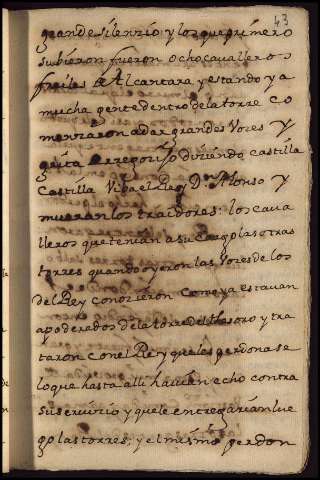 43
grande silenzio y los que primero
subieron fueron ocho cavalleros
frailes de Alcantara y estando ya
mucha gente dentro de la torre co
menzaron a dar grandes vozes y
grita diziendo, castilla
Castilla Viva el Rey Dn Alonso y
mueran los traidores: los cava
lleros que tenian a su cargo las otras
torres quando oyeron las vozes de los
del Rey conozieron como ya estavan
apoderados de la torre del thesoro y tra
taron con el Rey que les perdonase
lo que hasta alli havian echo contra
su servizio y que le entregarian lue
go las torres, y el mismo perdon